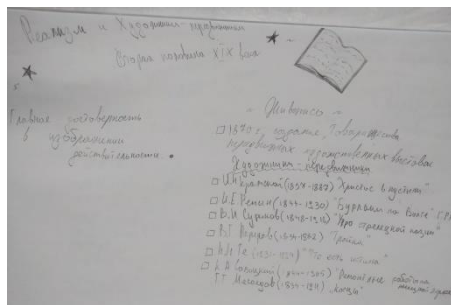 Реализм и Художники-передвижники
Вторая половина XIX века
Главное достоверность
в изображении
действительности.
- Живопись -
1870 г. создание Товарищества
передвижных художественных выставок
Художники-передвижники
И.Н Крамской (1837-1887) "Христос в пустыне"
И.Е. Репин (1844-1930) "Бурлаки на Волге"
В.И Суриков (1848-1916) "Утро стрелецкой казни"
В.Г. Перов (1834-1882) "Тройка"
Н.Н Ге (1831-1894) "Что есть истина"
К.А Савицкий (1844-1905) "Ремонтные работы на
Г.Г. Мясоедов (1834-1911) "Косцы"